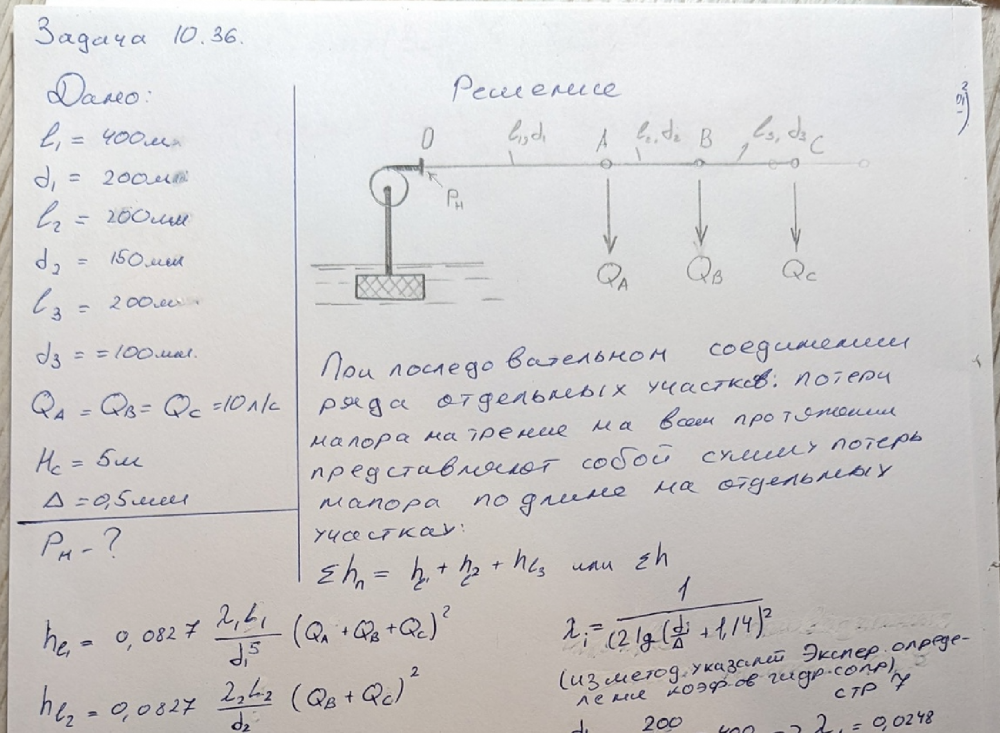 Задача 10.36.
Дано:
l₁ = 400м
d₁ = 200мм
l₂ = 200мм
d₂ = 150мм
l₃ = 200м
d₃ = =100мм.
QA = QB = QC = 10 л/с
Hc = 5м
Δ = 0,5мм
Pн - ?
Решение
O
l₁,d₁
A
l₂, d₂
B
l₃, d₃
C
Pн
QA
QB
QC
При последовательном соединении
ряда отдельных участков: потери
напора на трение на всем протяжении
представляют собой сумму потерь
напора по длине на отдельных
участках:
Σhп = hl₁ + hl₂ + hl₃ или Σh
hl₁ = 0,0827 λ₁L₁/d₁⁵ (QA + QB + QC)²
λi = 1/(2 lg (di/Δ + 1,14)²
(из метод. указаний Экспер. опреде-
ление коэф-ов гидр. сопр),
стр 7
hl₂ = 0,0827 λ₂L₂/d₂ (QB + QC)²
200
400 => λ₁ = 0,0248